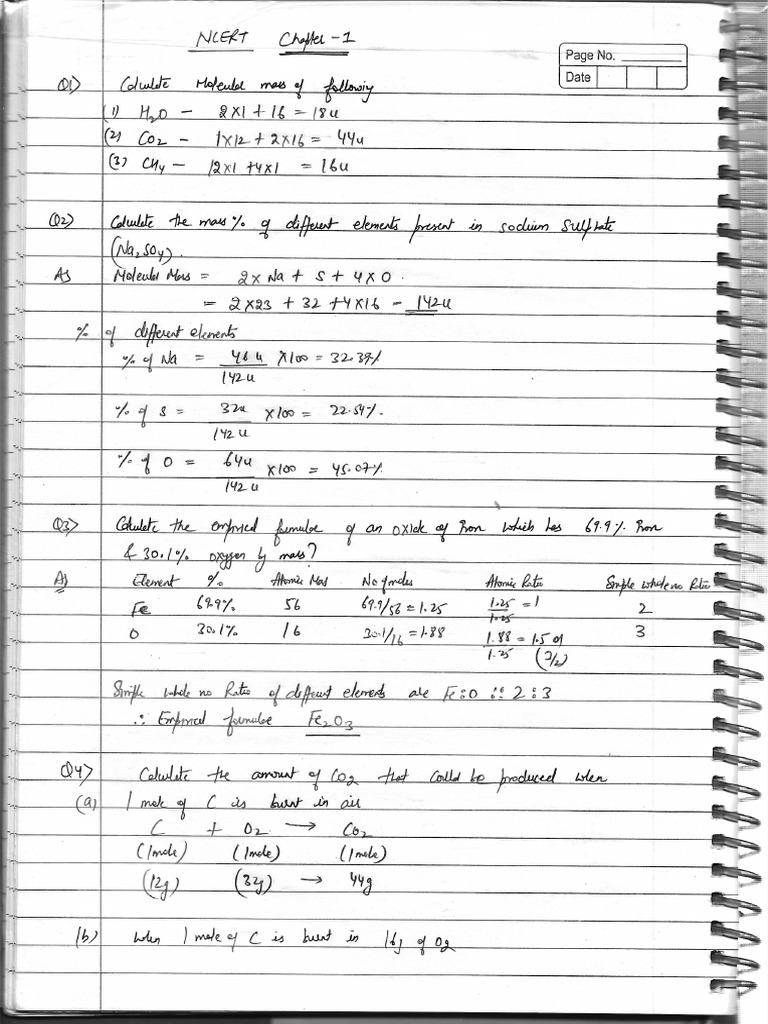 NCERT Chapter - 1
Page No.
Date
Q1) Calculate Molecular mass of following
(1) H2O - 2x1 + 16 = 18u
(2) CO2 - 1x12 + 2x16 = 44u
(3) CH4 - 12x1 + 4x1 = 16u
Q2) Calculate the mass % of different elements present in sodium Sulphate
(Na2SO4).
A) Molecular Mass = 2 x Na + S + 4 x O
= 2 x 23 + 32 + 4x16 - 142u
% of different elements
% of Na = 46u/142u x100 = 32.39%
% of S = 32u/142u x100 = 22.54%.
% of O = 64u/142u x100 = 45.07%
Q3) Calculate the emprical formulae of an oxide of Iron which has 69.9% Iron
& 30.1% oxygen by mass?
A) Element % Atomic Mass No of moles Atomic Ratio Simple whole no Ratio
Fe 69.9% 56 69.9/56 = 1.25 1.25/1.25 = 1 2
O 30.1% 16 30.1/16 = 1.88 1.88/1.25 = 1.5 or (3/2) 3
Simple whole no Ratio of different elements are Fe:O :: 2:3
∴ Emprical formulae Fe2O3
Q4) Calculate the amount of CO2 that could be produced when
(a) 1 mole of C is burnt in air
C + O2 → CO2
(1mole) (1mole) (1mole)
(12g) (32g) → 44g
(b) when 1 mole of C is burnt in 16g of O2